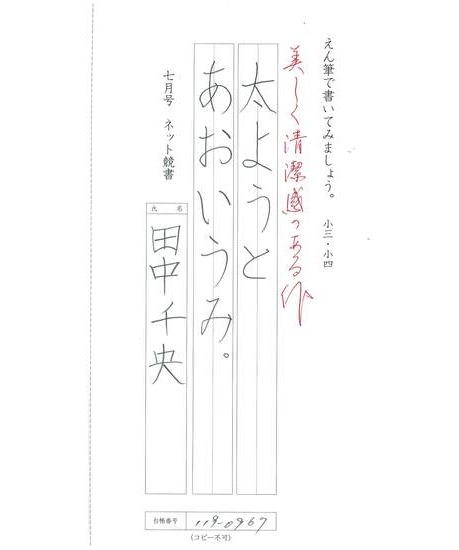 えん筆で書いてみましょう。 小三・小四
美しく清潔感のある作
太ようと
あおいうみ。
七月号 ネット競書
氏名
田中千央
台帳番号 119-0967
(コピー不可)